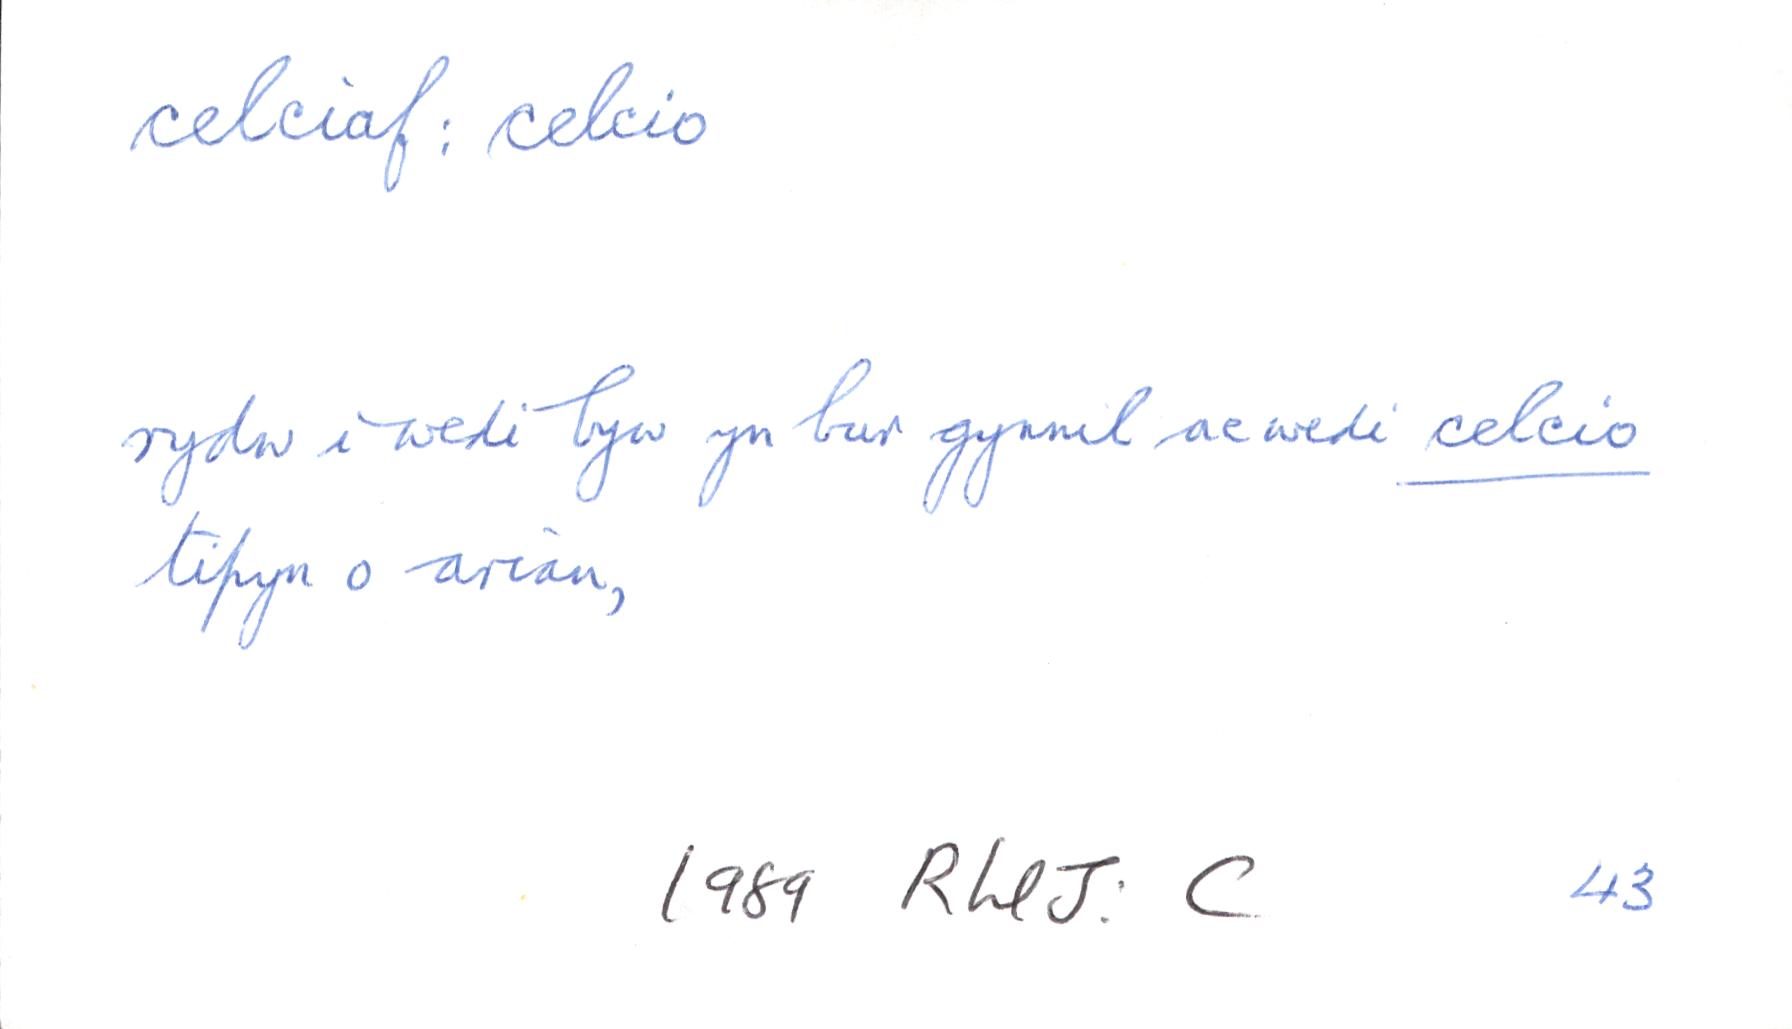 celciaf: celcio
rydw i wedi byw yn bur gynnil ac wedi celcio
tipyn o arian,
1989 RhlJ: C 43